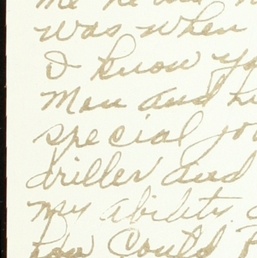 me he had
was when
I know yo
Man and h
special jo
driller and
my ability.
how Could